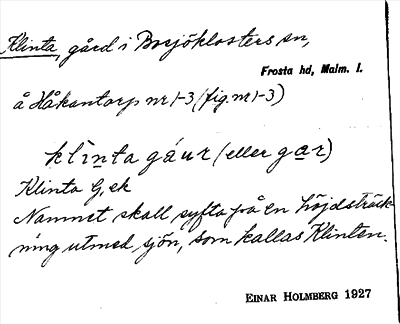 Klinta, gård i Bosjöklosters sn,
Frosta hd, Malm. l.
å Håkantorp nr 1-3 (fig. nr 1-3)
klìnta gáur (eller gar)
Klinta G, ek
Namnet skall syfta på en höjdsträck-
ning utmed sjön, som kallas Klinten.
EINAR HOLMBERG 1927